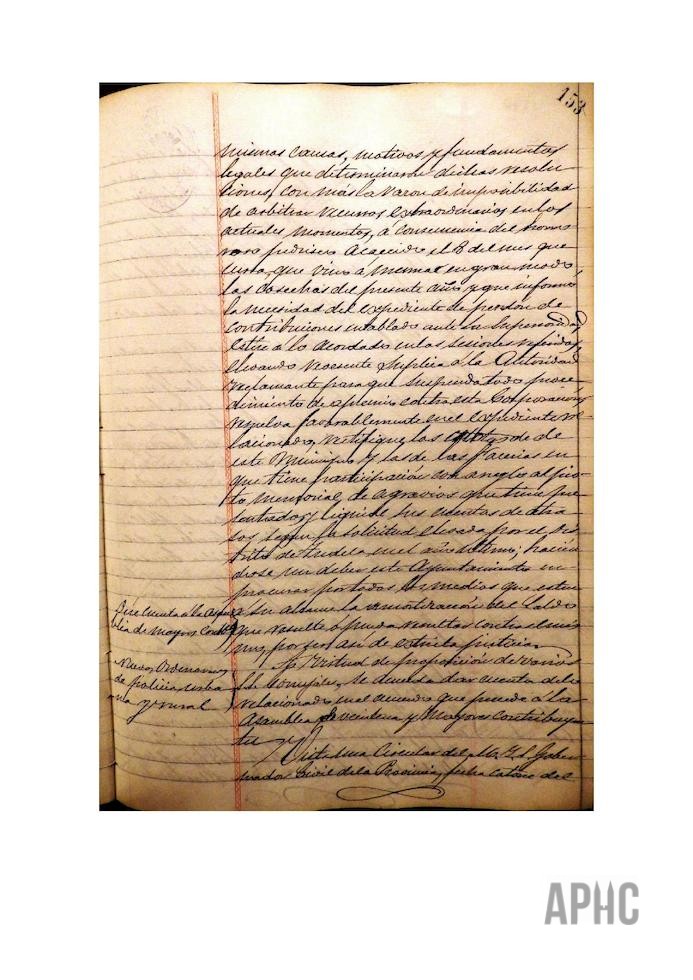 153
mismas causas, motivos y fundamentos
legales que determinaron dichas resolu-
ciones, con más la razon de imposibilidad
de arbitrar recursos extraordinarios en los
actuales momentos, á consecuencia del horro-
roso pedrisco acaecido el 8 del mes que
cursa, que vino á mermar en gran modo
las cosechas del presente año y que informó
la necesidad del expediente de perdon de
contribuciones entablado ante la Superioridad
estése á lo acordado en las sesiones referidas,
elevando reverente súplica á la Autoridad
reclamante para que suspenda todo proce-
dimiento de apremio contra esta Corporacion,
resuelva favorablemente en el expediente re-
lacionado, rectifique las de
este Municipio y las de las facerias en
que tiene participación con arreglo al
memorial de agravios que tiene pre-
sentado, y liquide sus cuentas de atra-
sos, segun la solicitud elevada por el Dis-
trito de Tudela en el año último; hacién-
dose un deber este Ayuntamiento en
procurar por todos los medios que esten
a su alcance la amortización del saldo
que resulte ó pueda resultar contra el mis-
mo, por ser así de estricta justicia.
Dése cuenta á la Asam-
blea de mayores Contbs
En Virtud de proposición de varios
S.S. Concejales, se acuerda dar cuenta de lo
relacionado en el acuerdo que precede á la
Asamblea de veintena y Mayores contribuyen-
tes
Nuevas Ordenanzas
de policia urba
na y rural
Vista una Circular del M. I. S. Gober-
nador Civil de la Provincia, fecha catorce del
APHC